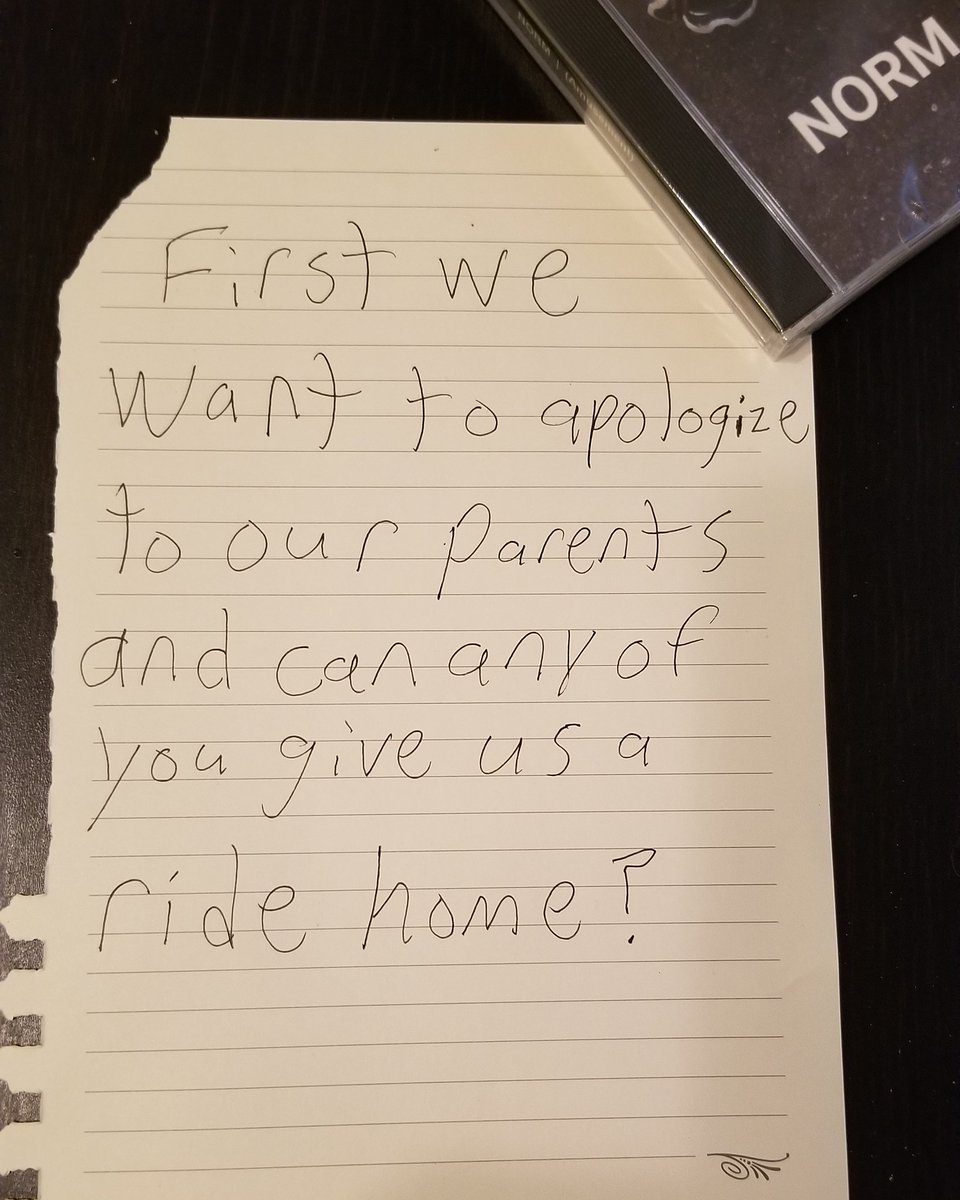 NORM
First we
want to apologize
to our parents
and can any of
you give us a
ride home?